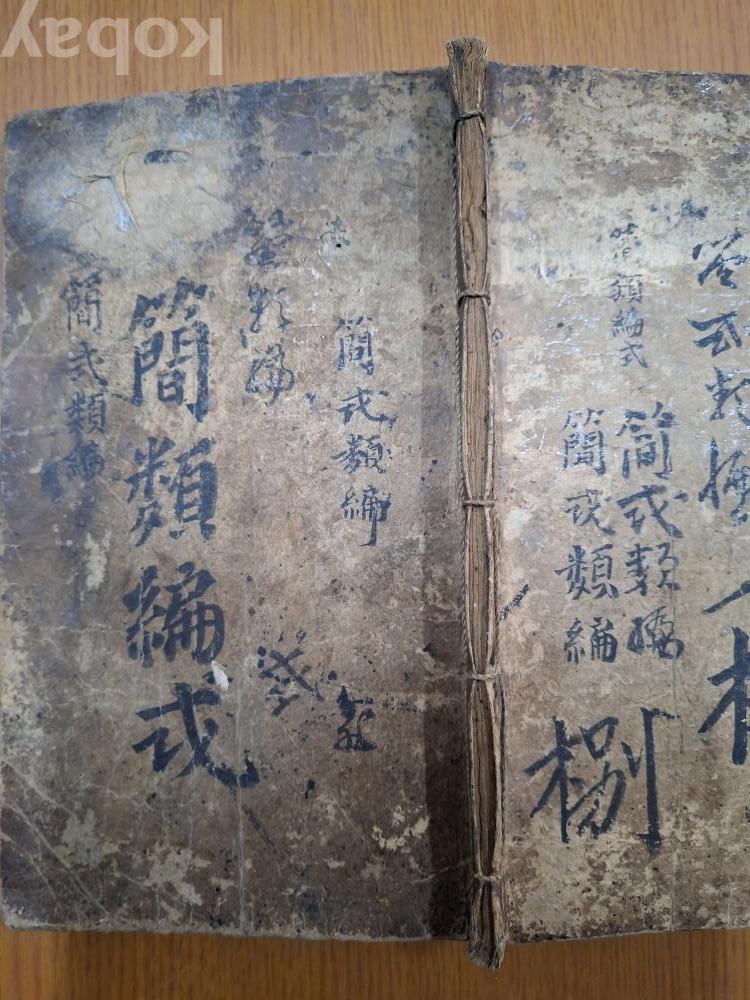 kobay
式類
簡類編式
簡式類編
簡式類編
捌
簡式類編
類編
簡類編式
簡式類編